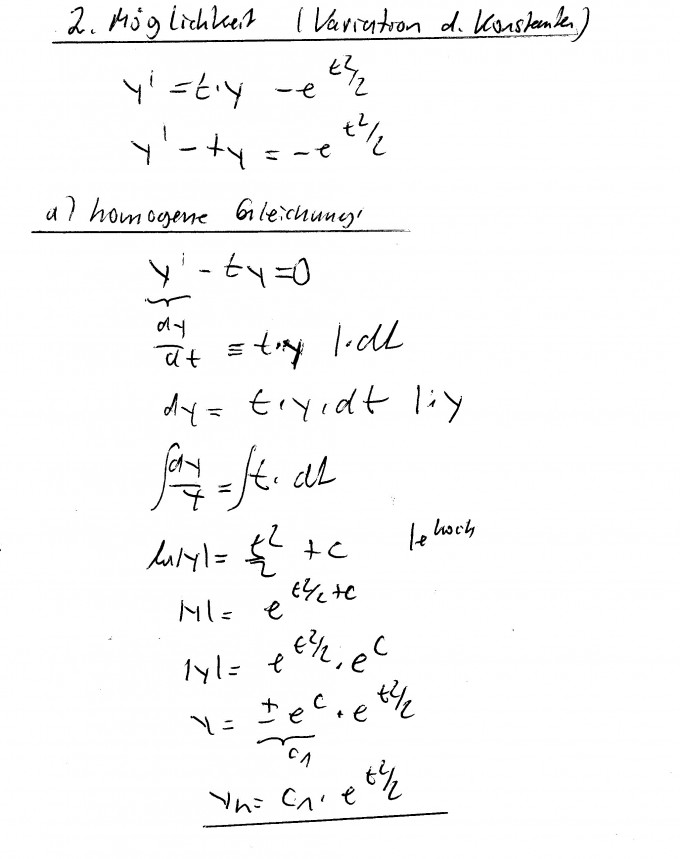 2. Möglichkeit (Variation d. Konstanten)
y' = t·y - e^(t²/2)
y' - ty = -e^(t²/2)
a) homogene Gleichung:
y' - ty = 0
dy/dt = t·y |·dt
dy = t·y·dt |:y
∫dy/y = ∫t·dt
ln|y| = t²/2 + c |e hoch
|y| = e^(t²/2 + c)
|y| = e^(t²/2) · e^c
y = ± e^c · e^(t²/2)
c₁
yₕ = c₁ · e^(t²/2)